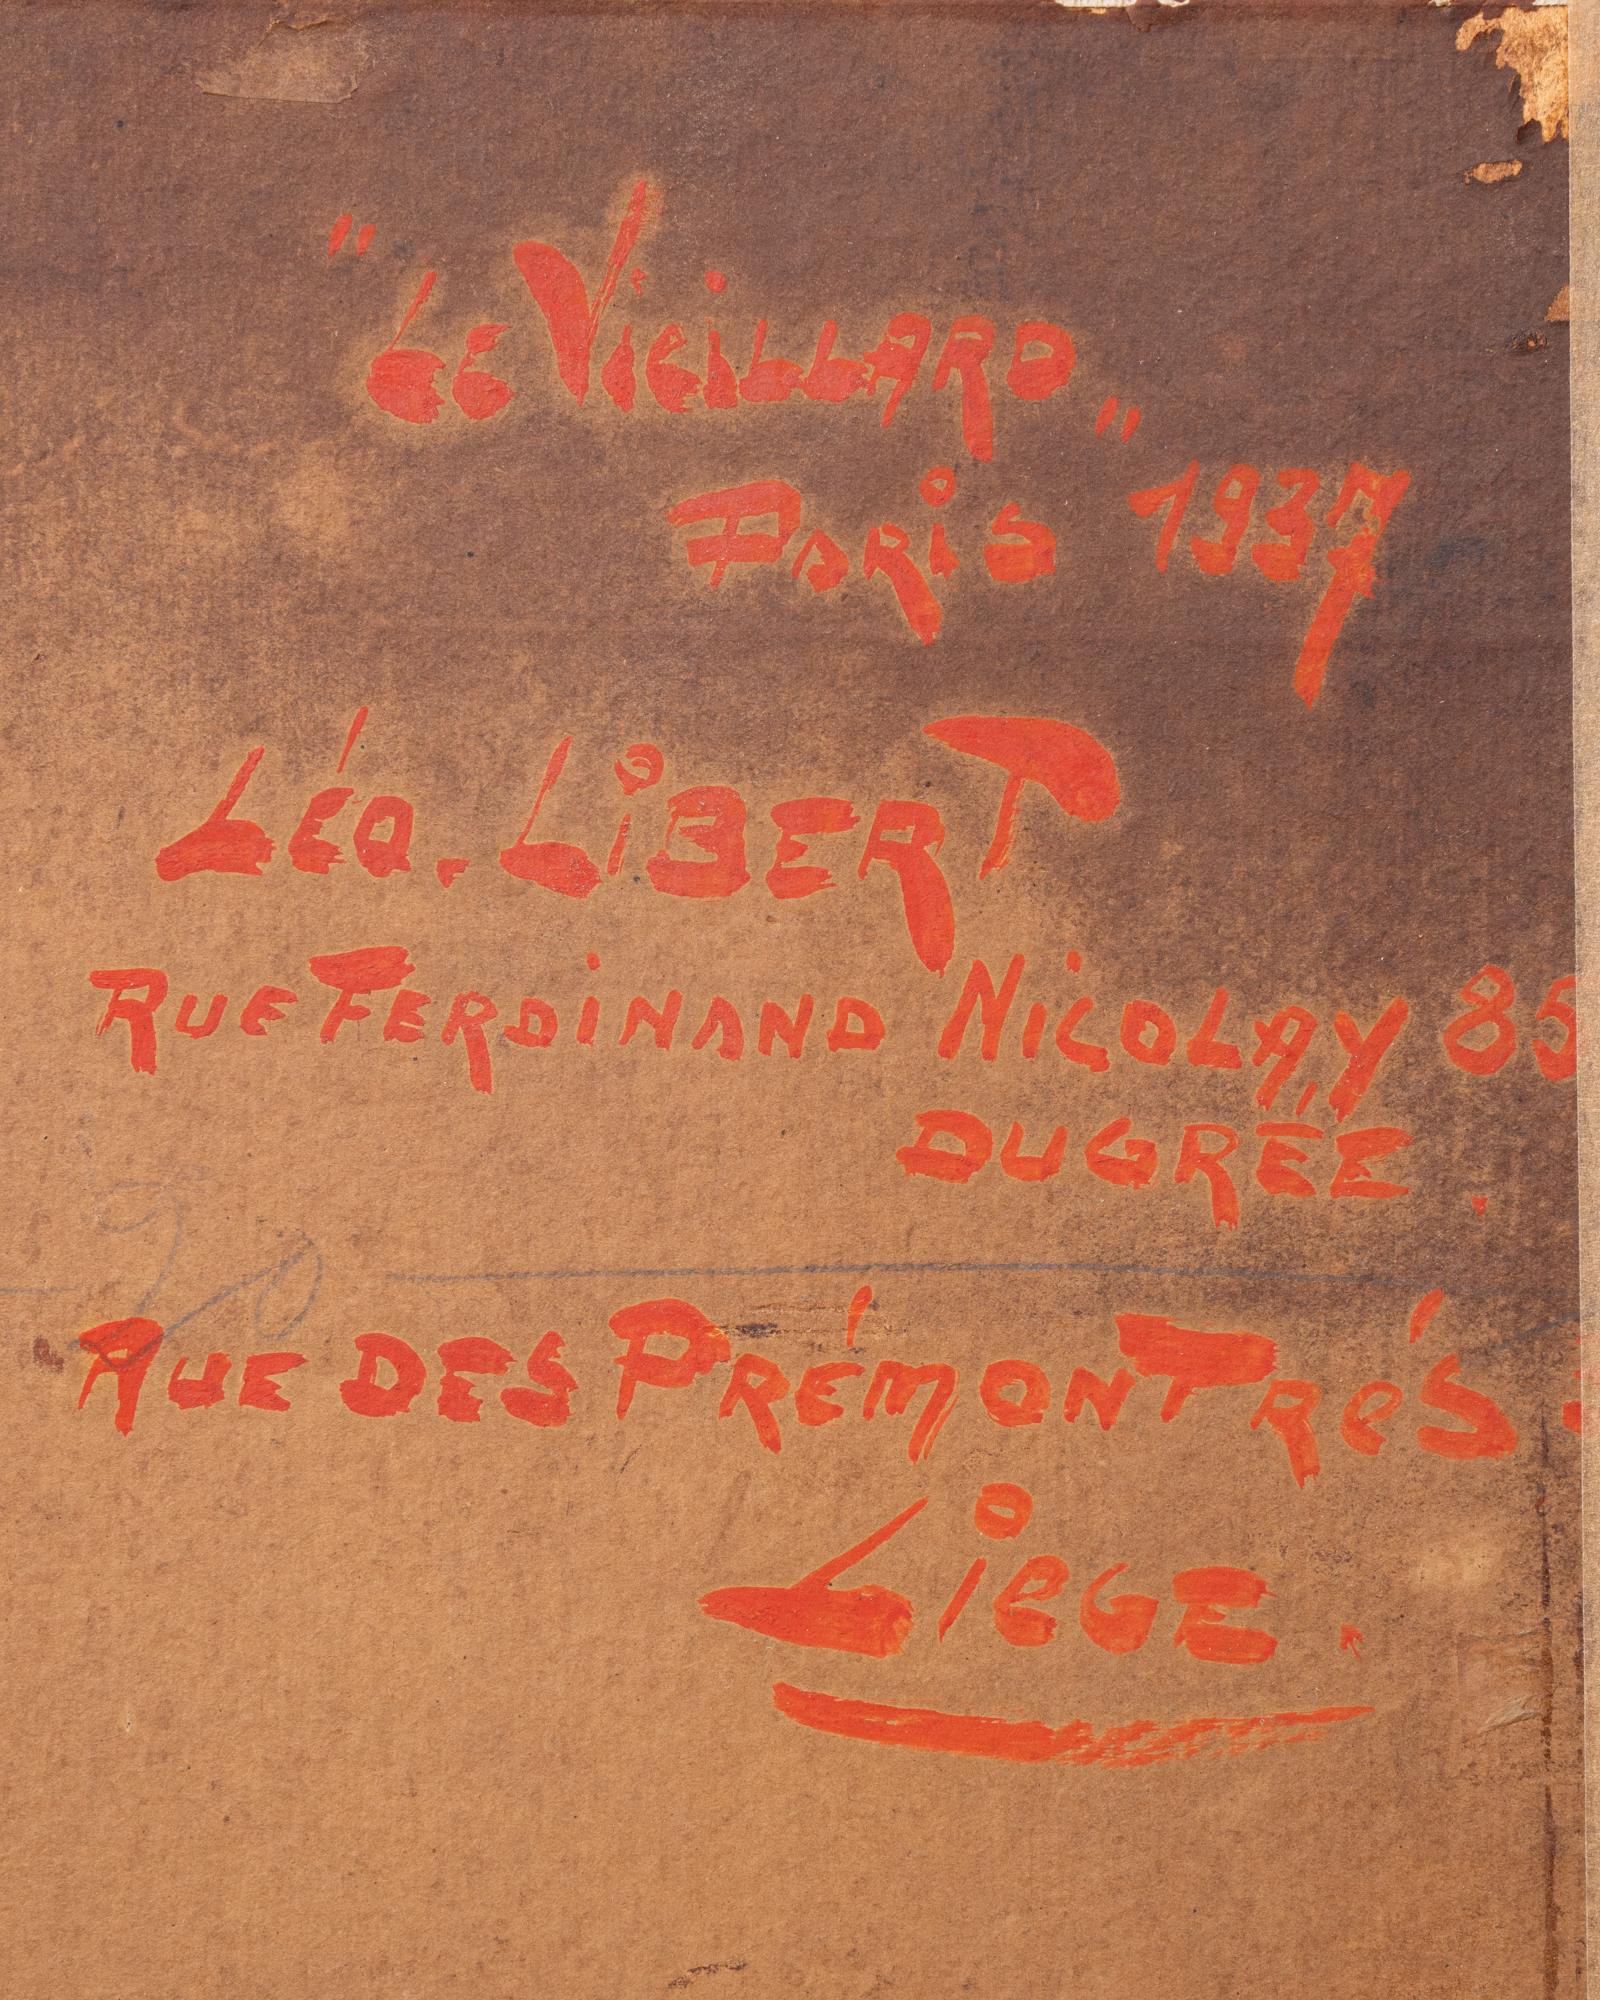 "Le Vieillard„
Paris 1937
Léo. Libert
Rue Ferdinand Nicolay 85
Ougrée.
20
Rue des Prémontrés
Liege.